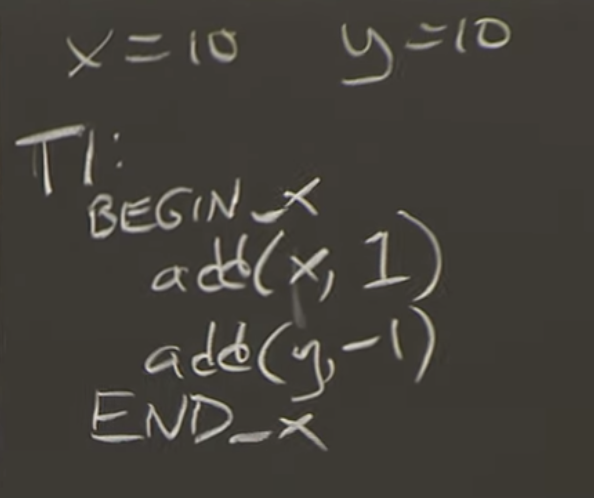 x=10 y=10
T1:
BEGIN_X
add(x, 1)
add(y,-1)
END_X